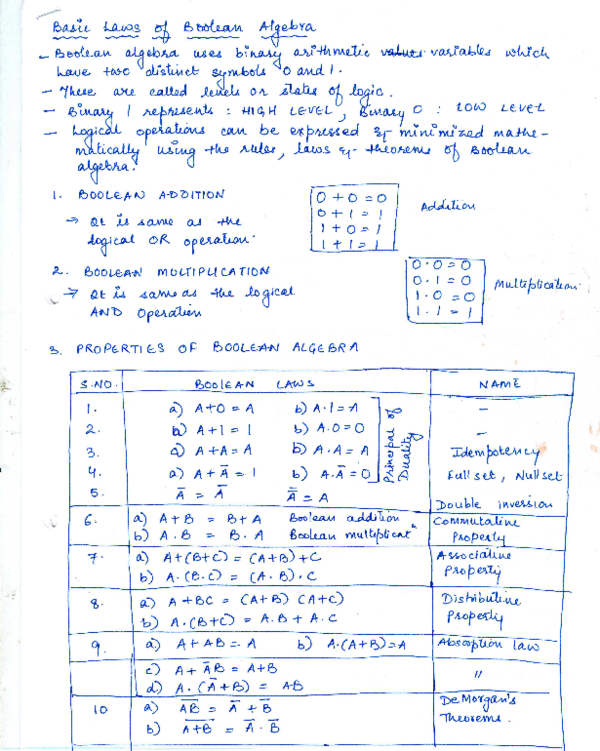 Basic Laws of Boolean Algebra
- Boolean algebra uses binary arithmetic variables which
have two distinct symbols 0 and 1.
- These are called levels or states of logic.
- Binary 1 represents : HIGH LEVEL, Binary 0 : LOW LEVEL
- Logical operations can be expressed & minimized mathe-
matically using the rules, laws & theorems of Boolean
algebra.
1. BOOLEAN ADDITION
→ It is same as the
logical OR operation.
0 + 0 = 0
0 + 1 = 1
1 + 0 = 1
1 + 1 = 1
Addition
2. BOOLEAN MULTIPLICATION
→ It is same as the logical
AND Operation
0 · 0 = 0
0 · 1 = 0
1 · 0 = 0
1 · 1 = 1
Multiplication.
3. PROPERTIES OF BOOLEAN ALGEBRA
S.NO. BOOLEAN LAWS NAME
1. a) A+0 = A b) A·1 = A -
2. a) A+1 = 1 b) A·0 = 0 -
3. a) A+A = A b) A·A = A Idempotency
4. a) A+A̅ = 1 b) A·A̅ = 0 Full set, Null set
Principal of
Duality
5. A̅ = A̅ A̿ = A Double inversion
6. a) A+B = B+A Boolean addition Commutative
b) A·B = B·A Boolean multiplicatn Property
7. a) A+(B+C) = (A+B)+C Associative
b) A·(B·C) = (A·B)·C Property
8. a) A+BC = (A+B) (A+C) Distributive
b) A·(B+C) = A·B + A·C Property
9. a) A+AB = A b) A·(A+B) = A Absorption law
c) A + A̅B = A+B "
d) A·(A̅+B) = AB
10 a) A̅B̅ = A̅ + B̅ DeMorgan's
b) A̅+̅B̅ = A̅·B̅ Theorems.